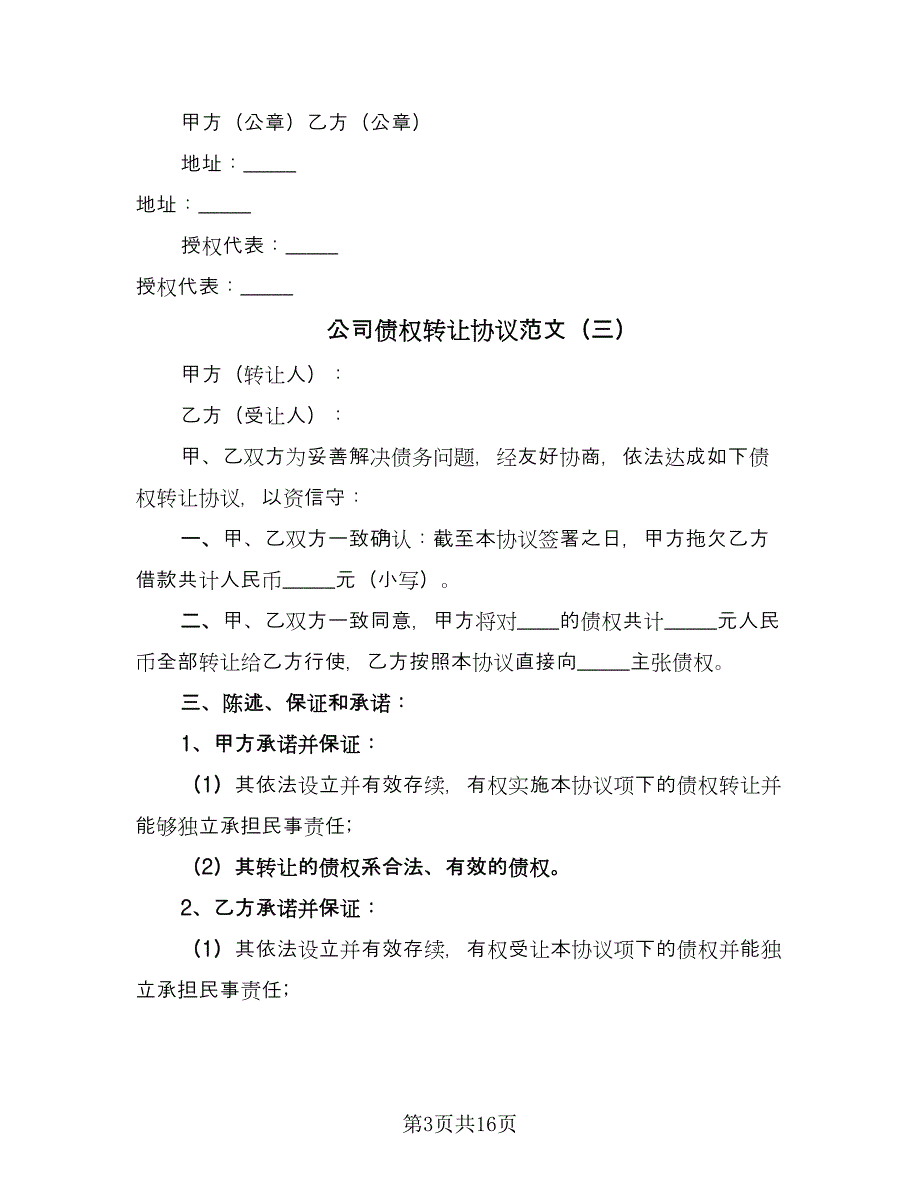 甲方（公章）乙方（公章）
地址：_____
地址：_____
授权代表：_____
授权代表：_____
公司债权转让协议范文（三）
甲方（转让人）：
乙方（受让人）：
甲、乙双方为妥善解决债务问题，经友好协商，依法达成如下债
权转让协议，以资信守：
一、甲、乙双方一致确认：截至本协议签署之日，甲方拖欠乙方
借款共计人民币_____元（小写）。
二、甲、乙双方一致同意，甲方将对____的债权共计_____元人民
币全部转让给乙方行使，乙方按照本协议直接向_____主张债权。
三、陈述、保证和承诺：
1、甲方承诺并保证：
（1）其依法设立并有效存续，有权实施本协议项下的债权转让并
能够独立承担民事责任；
（2）其转让的债权系合法、有效的债权。
2、乙方承诺并保证：
（1）其依法设立并有效存续，有权受让本协议项下的债权并能独
立承担民事责任；
第3页共16页